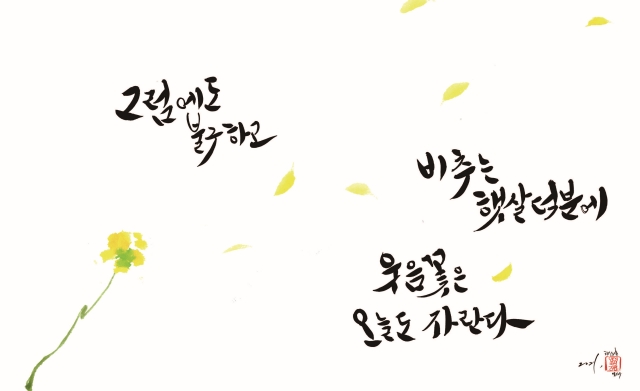 그럼에도
불구하고
비추는
햇살 덕분에
웃음꽃은
오늘도 자란다
2021.